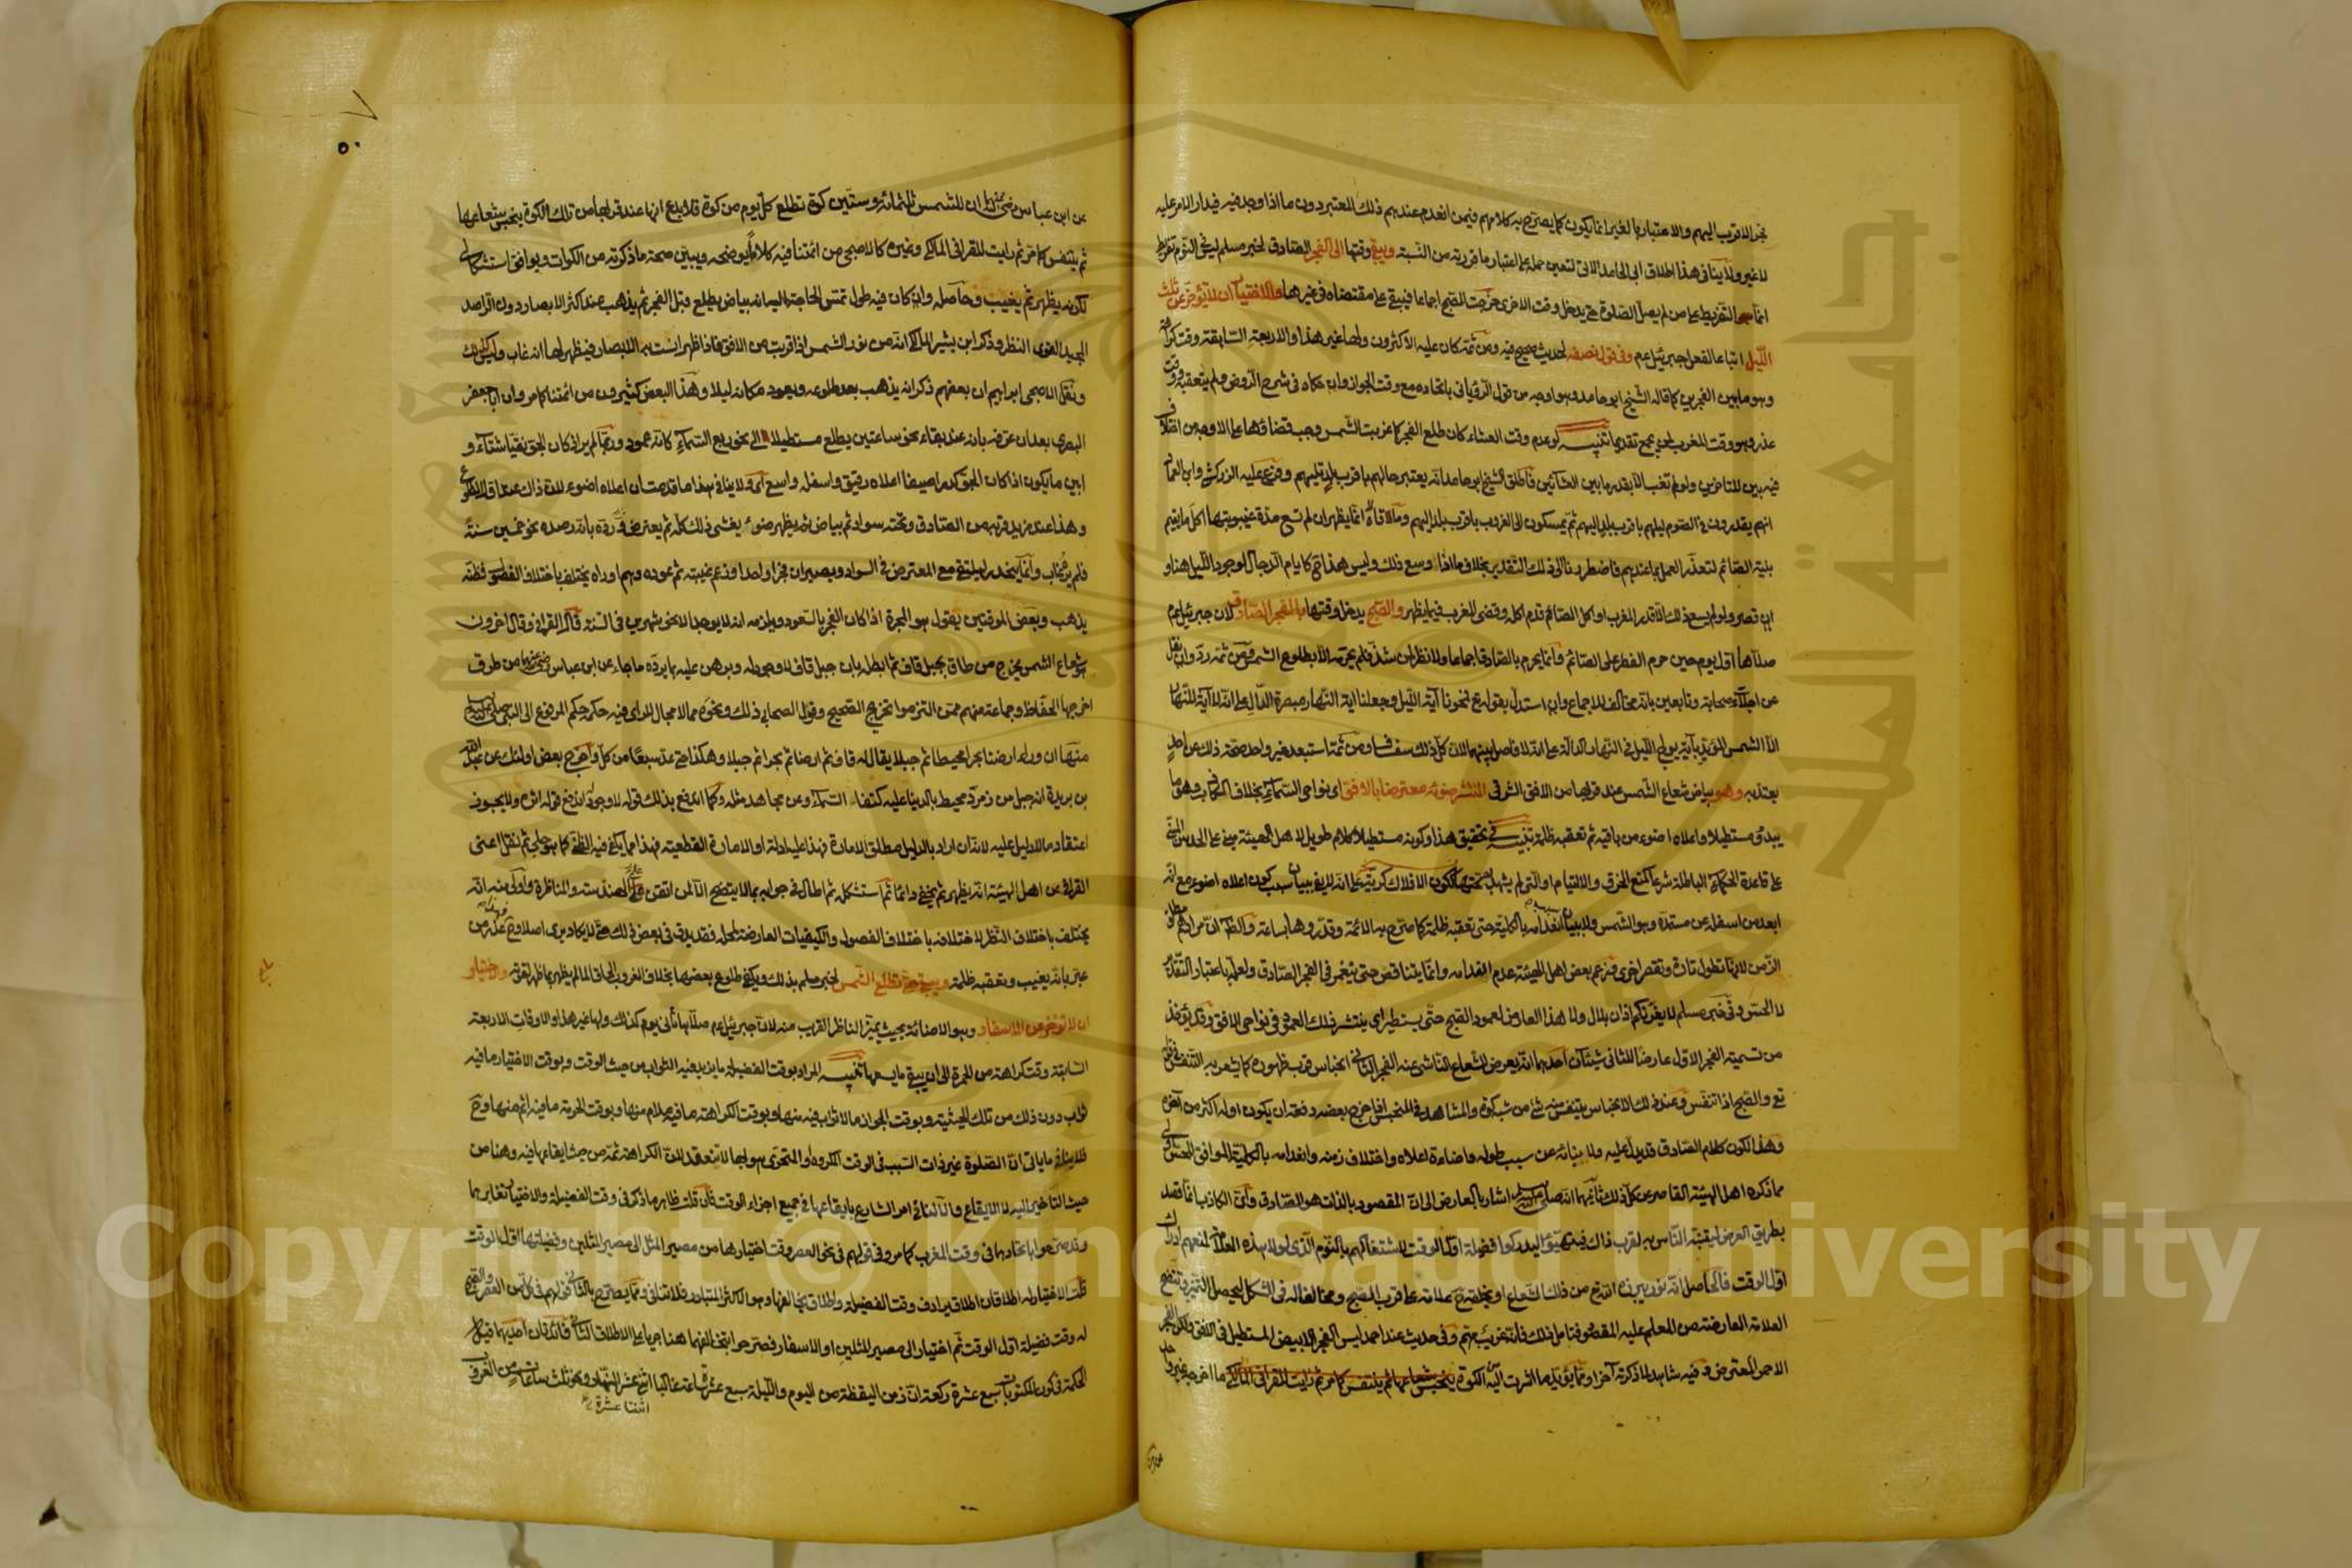 نحو الاقرب اليهم والاعتبار بالغير انما يكون كما يصرح به كلامهم فيمن انعدم عندهم ذلك المعتبر دون ما اذا وجد فيه فيدار الامر عليه
لا غير ولا ينافي هذا اطلاق ابي حامد الاتي لتعين حمله على اعتبار ما قررته من النسبة ويبقى وقتها الى الفجر الصادق لخبر مسلم ليس في النوم تفريط
انما التفريط على من لم يصل الصلوة حتى يدخل وقت الاخرى خرجت الصبح اجماعا فيبقى على مقتضاه في غيرها والاختيار ان لا تؤخر عن ثلث
الليل اتباعا لفعل جبرئيل عم وفي قول نصفه لحديث صحيح فيه ومن ثمه كان عليه الاكثرون ولها غير هذا والاربعة السابقة وقت كراهة
وهو ما بين الفجرين كما قاله الشيخ ابو حامد وهو اوجه من قول الروياني باتحاده مع وقت الجواز وان حكاه في شرح الروض ولم يتعقبه وقت
عذر وهو وقت المغرب لمن يجمع تقديما تنبيه لو عدم وقت العشاء كان طلع الفجر كما غربت الشمس وجب قضاؤها على الاوجه من اختلاف
فيه بين المتاخرين ولو لم تغب الا بقدر ما بين العشائين فاطلق الشيخ ابو حامد انه يعتبر حالهم باقرب بلد تليهم وفرع عليه الزركشي وابن العماد
انهم يقدرون في الصوم ليلهم باقرب بلد اليهم ثم يمسكون الى الغروب باقرب بلد اليهم وما قالاه انما يظهر ان لم تسع مدة غيبوبتها اكل ما يقيم
بنية الصائم لتعذر العمل بما عندهم فاضطررنا الى ذلك التقدير بخلاف ما اذا وسع ذلك وليس هذا كايام الدجال لوجود الليل هنا و
ان قصر ولو لم يسع ذلك الا قدر المغرب او اكل الصائم قدم اكله وقضى المغرب فيما يظهر والصبح يدخل وقتها بالفجر الصادق لان جبرئيل عم
صلاها اول يوم حين حرم الفطر على الصائم وانما يحرم بالصادق اجماعا ولا نظر لمن شذ فلم يحرمه الا بطلوع الشمس ومن ثمه رد وان نقل
عن اجلاء صحابة وتابعين بانه مخالف للاجماع وان استدل بقوله تع فمحونا آية الليل وجعلنا اية النهار مبصرة الدال على انه لا آية للنهار
الا الشمس المؤيد بآية يولج الليل في النهار الدالة على انه لا فاصل بينهما لان كل ذلك سفساف ومن ثمه استبعد غير واحد صحة ذلك عن احد
يعتد به وهو بياض شعاع الشمس عند قربها من الافق الشرقي المنتشر ضوئه معترضا بالافق اي نواحي السماء بخلاف الكاذب وهو ما
يبدو مستطيلا واعلاه اضوء من باقيه ثم تعقبه ظلمة تنبيه في تحقيق هذا وكونه مستطيلا كلام طويل لاهل الهيئة مبني على الحدس المبني
على قاعدة الحكماء الباطلة شرعا كمنع الخرق والالتيام او التي لم يشهد بصحتها ككون الافلاك كرية على انه لا يفي ببيان سبب كون اعلاه اضوء مع انه
ابعد من اسفله عن مستمده وهو الشمس ولا ببيان سبب انعدامه بالكلية حتى تعقبه ظلمة كما صرح به الائمة وقدروها بساعة والظاهر ان مرادهم مطلق
الزمن لانها تطول تارة وتقصر اخرى وزعم بعض اهل الهيئة عدم انعدامه وانما يتناقص حتى ينغمر في الفجر الصادق ولعله باعتبار التقدير
لا الحس وفي خبر مسلم لا يغرنكم اذان بلال ولا هذا العارض لعمود الصبح حتى يستطير اي ينتشر ذلك العمود في نواحي الافق وقد يؤخذ
من تسمية الفجر الاول عارضا للثاني شيئان احدهما انه يعرض للشعاع الناشئ عنه الفجر الثاني انحباس قرب ظهوره كما يشعر به التنفس في قوله
تع والصبح اذا تنفس وعند ذلك الانحباس يتنفس منه شئ من شبه كوة والمشاهد في المنحبس اذا خرج بعضه دفعة ان يكون اوله اكثر من آخره
وهذا لكون كلام الصادق قد يدل عليه ولا ينبائه عن سبب طوله واضاءة اعلاه واختلاف زمنه وانعدامه بالكلية الموافق للحس اولى
مما ذكره اهل الهيئة القاصر عن كل ذلك ثانيهما انه صلى الله عليه وسلم اشار بالعارض الى ان المقصود بالذات هو الصادق وان الكاذب انما قصد
بطريق العرض لينتبه الناس به لقرب ذاك فيتهيؤا ليدركوا فضيلة اول الوقت لاشتغالهم بالنوم الذي لولا هذه العلامة لمنعهم ادراك
اول الوقت فالحاصل انه نور يبرزه الله تع من ذلك الشعاع او يخلقه ح علامة على قرب الصبح ومخالفا له في الشكل ليحصل التميز وتتضح
العلامة العارضة من المعلم عليه المقصود فتامل ذلك فانه غريب مهم وفي حديث عند احمد ليس الفجر الابيض المستطيل في الافق ولكن الفجر
الاحمر المعترض وفيه شاهد لما ذكرته آخرا ومما يؤيد ما اشرت اليه الكوة ينحبس شعاعها ثم يتنفس كما مر ثم رايت للقرافي المالكي ما اخرجه غير واحد
٥٠
عن ابن عباس رضي عنهما ان للشمس ثلثمائة وستين كوة تطلع كل يوم من كوة فلا بدع انها عند قربها من تلك الكوة ينحبس شعاعها
ثم يتنفس كما مر ثم رايت للقرافي المالكي وغيره كالاصبحي من ائمتنا فيه كلاما يوضحه ويبين صحة ما ذكرته من الكوات ويوافق استشكالي
لكونه يظهر ثم يغيب وحاصله وان كان فيه طول تمس الحاجة اليه انه بياض يطلع قبل الفجر ثم يذهب عند اكثر الابصار دون الراصد
المجيد القوي النظر وذكر ابن بشير المالكي انه من نور الشمس اذا قربت من الافق فاذا ظهر انست به الابصار فيظهر لها انه غاب وليس كذلك
ونقل الاصبحي ابراهيم ان بعضهم ذكر انه يذهب بعد طلوعه ويعود مكانه ليلا وهذا البعض كثيرون من ائمتنا كما مر وان ابا جعفر
البصري بعد ان عرفه بانه عند بقاء نحو ساعتين يطلع مستطيلا الى نحو ربع السماء كانه عمود وربما لم ير اذا كان الجو نقيا شتاء و
ابين ما يكون اذا كان الجو كدرا صيفا اعلاه دقيق واسفله واسع اي ولا ينافي هذا ما قدمته ان اعلاه اضوء لان ذلك عند اول الطلوع
وهذا عند مزيد قربه من الصادق وتحته سواد ثم بياض ثم يظهر ضوء يغشى ذلك كله ثم يعترض رده بانه رصده نحو خمسين سنة
فلم يره غاب وانما ينحدر ليلتقي مع المعترض في السواد ويصيران فجرا واحدا وزعم غيبته ثم عوده وهم او راه يختلف باختلاف الفصول فظنه
يذهب وبعض الموقتين يقول هو المجرة اذا كان الفجر بالسعود ويلزمه انه لا يوجد الا نحو شهرين في السنة قال القرافي وقال اخرون
هو شعاع الشمس يخرج من طاق بجبل قاف ثم ابطله بان جبل قاف لا وجود له وبرهن عليه بما يرده ما جاء عن ابن عباس رضي عنهما من طرق
اخرجها الحفاظ وجماعة منهم ممن التزموا تخريج الصحيح وقول الصحابي ذلك ونحوه مما لا مجال للراي فيه حكمه حكم المرفوع الى النبي صلى الله عليه وسلم
منها ان وراء ارضنا بحرا محيطا ثم جبلا يقال له قاف ثم ارضا ثم بحرا ثم جبلا وهكذا حتى عد سبعا من كل واخرج بعض اولئك عن عبد الله
بن بريدة انه جبل من زمرد محيط بالدنيا عليه كنفا السماء وعن مجاهد مثله وكما اندفع بذلك قوله لا وجود له اندفع قوله اثره ولا يجوز
اعتقاد ما لا دليل عليه لانه ان اراد بالدليل مطلق الامارة فهذا عليه ادلة او الامارة القطعية فهذا مما يكفي فيه الظن كما هو جلي ثم نقل اعني
القرافي عن اهل الهيئة انه يظهر ثم يخفى دائما ثم استشكله ثم اطال في جوابه بما لا يتضح الا لمن اتقن علم الهندسة والمناظرة واولى منه انه
يختلف باختلاف النظر لاختلافه باختلاف الفصول والكيفيات العارضة لمحله فقد يدق في بعض ذلك حتى لا يكاد يرى اصلا وح عذر من
عبر بانه يغيب وتعقبه ظلمة ويبقى حتى تطلع الشمس لخبر مسلم بذلك ويكفي طلوع بعضها بخلاف الغروب الحاقا لما لم يظهر بما ظهر لقوته والاختيار
ان لا تؤخر عن الاسفار وهو الاضاءة بحيث يميز الناظر القريب منه لان جبرئيل عم صلاها ثاني يوم كذلك ولها غير هذا والاوقات الاربعة
السابقة وقت كراهة من الحمرة الى ان يبقى ما يسعها تنبيه المراد بوقت الفضيلة ما يزيد فيه الثواب من حيث الوقت وبوقت الاختيار ما فيه
ثواب دون ذلك من تلك الحيثية وبوقت الجواز ما لا ثواب فيه منها وبوقت الكراهة ما فيه ملام منها وبوقت الحرمة ما فيه اثم منها وح
فلا ينافي ما ياتي ان الصلوة غير ذات السبب في الوقت المكروه او المتحرى هو لها لا تنعقد لان الكراهة ثمه من حيث ايقاعها فيه وهنا من
حيث التاخير اليه لا الايقاع والا لنافى امر الشارع بايقاعها في جميع اجزاء الوقت فان قلت ظاهر ما ذكر في وقت الفضيلة والاختيار تغايرهما
وقد صرحوا باتحادهما في وقت المغرب كما مر وفي قولهم في نحو العصر وقت اختيارها من مصير المثل الى مصير المثلين وفضيلتها اول الوقت
قلت الاختيار له اطلاقان اطلاق يرادف وقت الفضيلة واطلاق يخالفها وهو الاكثر المتبادر فلا تنافي ومما يصرح بالثاني قولهم في كل من العصر والصبح
له وقت فضيلة اول الوقت ثم اختيار الى مصير المثلين او الاسفار فصرحوا بتخالفهما هنا جريا على الاطلاق الثاني فائدتان احديهما قيل
الحكمة في كون المكتوبات سبع عشرة ركعة ان زمن اليقظة من اليوم والليلة سبع عشرة ساعة غالبا اثنى عشر النهار ونحو ثلث ساعات من الغروب
اثنتا عشرة
جامعة الملك سعود
Copyright © King Saud University